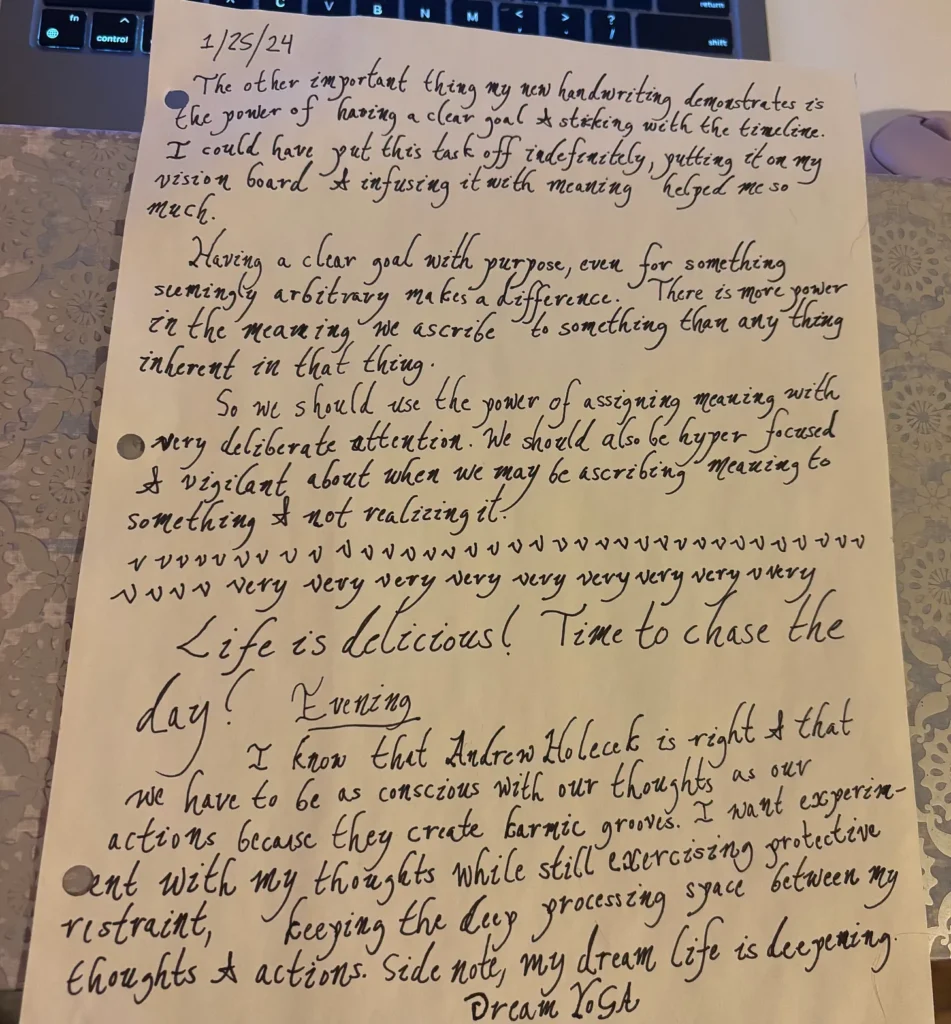 fn
control
C
V
B
N
M
<
,
>
.
?
/
return
shift
1/25/24
The other important thing my new handwriting demonstrates is
the power of having a clear goal & sticking with the timeline.
I could have put this task off indefinitely, putting it on my
vision board & infusing it with meaning helped me so
much.
Having a clear goal with purpose, even for something
seemingly arbitrary makes a difference. There is more power
in the meaning we ascribe to something than any thing
inherent in that thing.
So we should use the power of assigning meaning with
very deliberate attention. We should also be hyper focused
& vigilant about when we may be ascribing meaning to
something & not realizing it.
v v v v v v v v v v v v v v v v v v v v v v v v v v v v v v v v
v v v v very very very very very very very very v very
Life is delicious! Time to chase the
day! Evening
I know that Andrew Holecek is right & that
we have to be as conscious with our thoughts as our
actions because they create karmic grooves. I want experim-
ent with my thoughts while still exercising protective
restraint, keeping the deep processing space between my
thoughts & actions. Side note, my dream life is deepening.
Dream YOGA